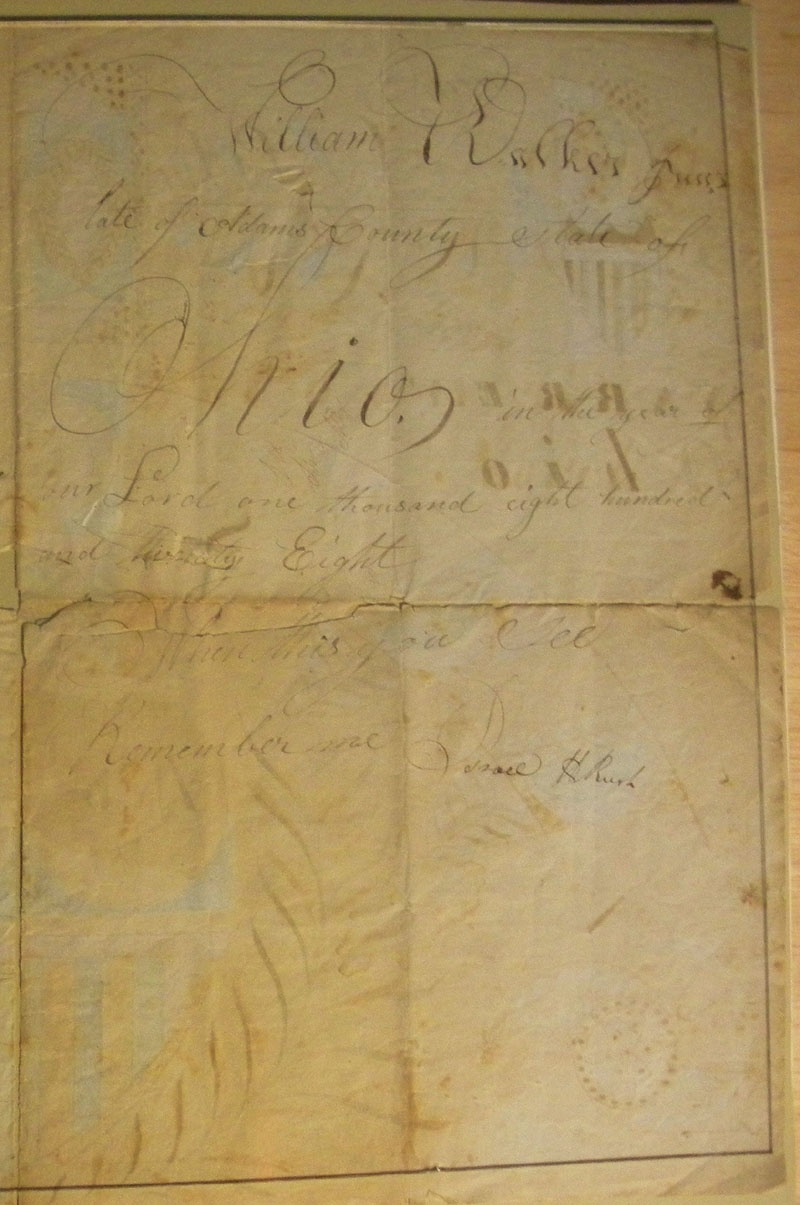 William Walker Junr
late of Adams County state of
Ohio. in the year of
our Lord one thousand eight hundred
and twenty Eight
When this you See
Remember me Israel H Rush